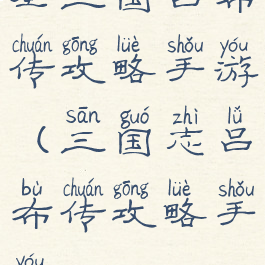 三国吕布
chuán gōng lüè shǒu yóu
传攻略手游
sān guó zhì lǚ
（三国志吕
bù chuán gōng lüè shǒu
布传攻略手
yóu